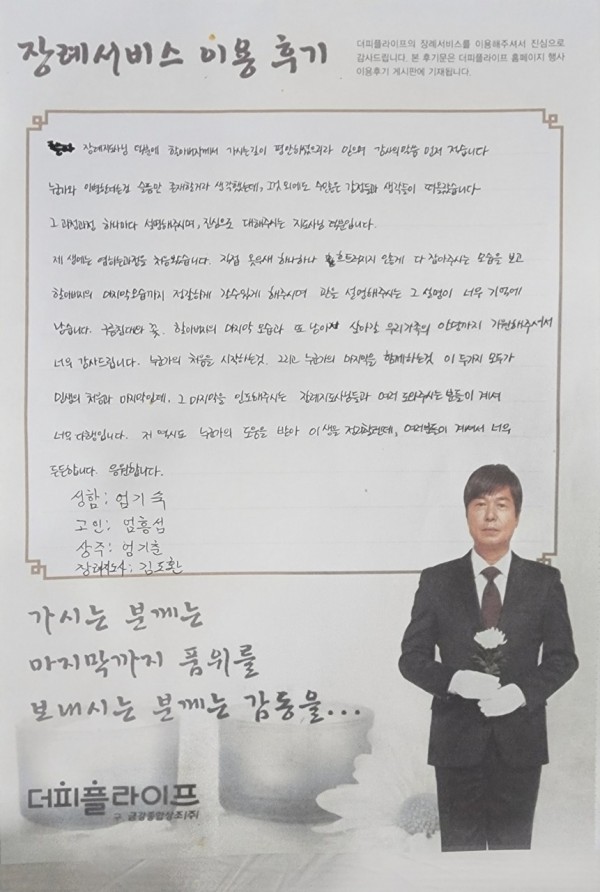 장례서비스 이용 후기
더피플라이프의 장례서비스를 이용해주셔서 진심으로
감사드립니다. 본 후기문은 더피플라이프 홈페이지 행사
이용후기 게시판에 기재됩니다.
장례지도사님 덕분에 할아버지께서 가시는길이 평안하셨으리라 믿으며 감사의말씀 먼저 적습니다
누군가와 이별한다는걸 슬픔만 존재할거라 생각했는데, 그것 외에도 수많은 감정들과 생각들이 떠올랐습니다
그 과정과정 하나하나 설명해주시며, 진심으로 대해주시는 지도사님 덕분입니다.
제 생에는 염하는과정을 처음봤습니다. 직접 옷의새 하나하나 흐트러지지 않게 다 잡아주시는 모습을 보고
할아버지의 마지막모습까지 정갈하게 갈수있게 해주시며 관을 설명해주시는 그 설명이 너무 기억에
남습니다. 구름침대와 꽃. 할아버지의 마지막 모습과 또 남아서 살아갈 우리가족의 안녕까지 기원해주셔서
너무 감사드립니다. 누군가의 처음을 시작하는것. 그리고 누군가의 마지막을 함께하는것 이 두가지 모두가
인생의 처음과 마지막인데, 그 마지막을 인도해주시는 장례지도사님들과 여러 도와주시는 분들이 계셔
너무 다행입니다. 저 역시도 누군가의 도움을 받아 이 생을 정리할텐데, 여러분들이 계셔서 너무
든든합니다. 응원합니다.
성함: 엄기숙
고인: 엄흥섭
상주: 엄기훈
장례지도사: 김도환
가시는 분께는
마지막까지 품위를
보내시는 분께는 감동을...
더피플라이프
구. 금강종합상조(주)